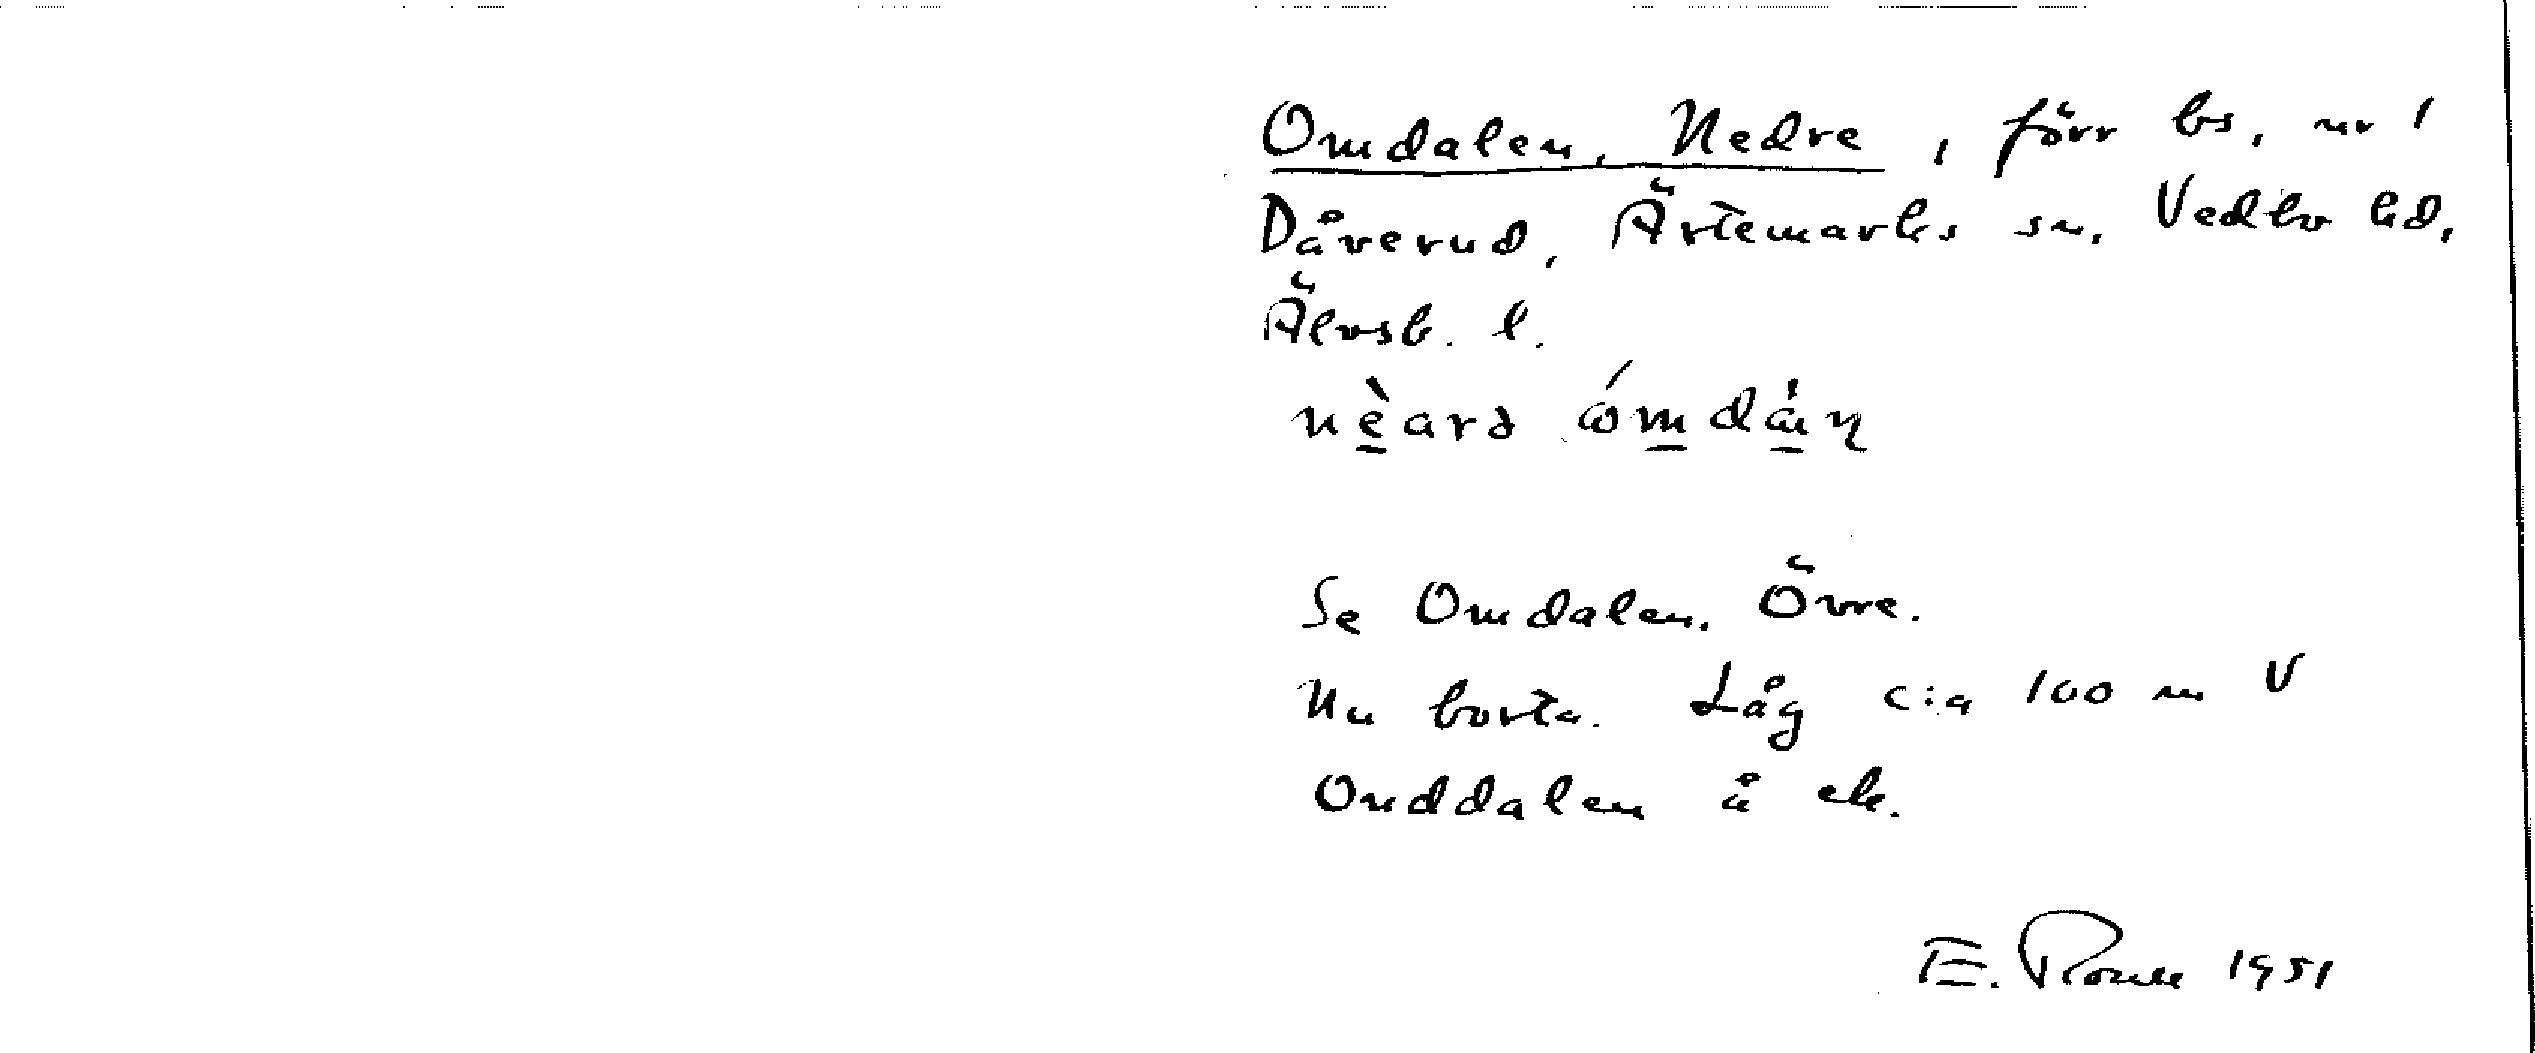 Omdalen, Nedre, förr bs, nr 1
Dåverud, Ärtemarks sn. Vedbo hd,
Älvsb. l.
Se Omdalen. Övre.
Nu borta. Låg c:a 100 m V
Onddalen å ek.
E. 1951